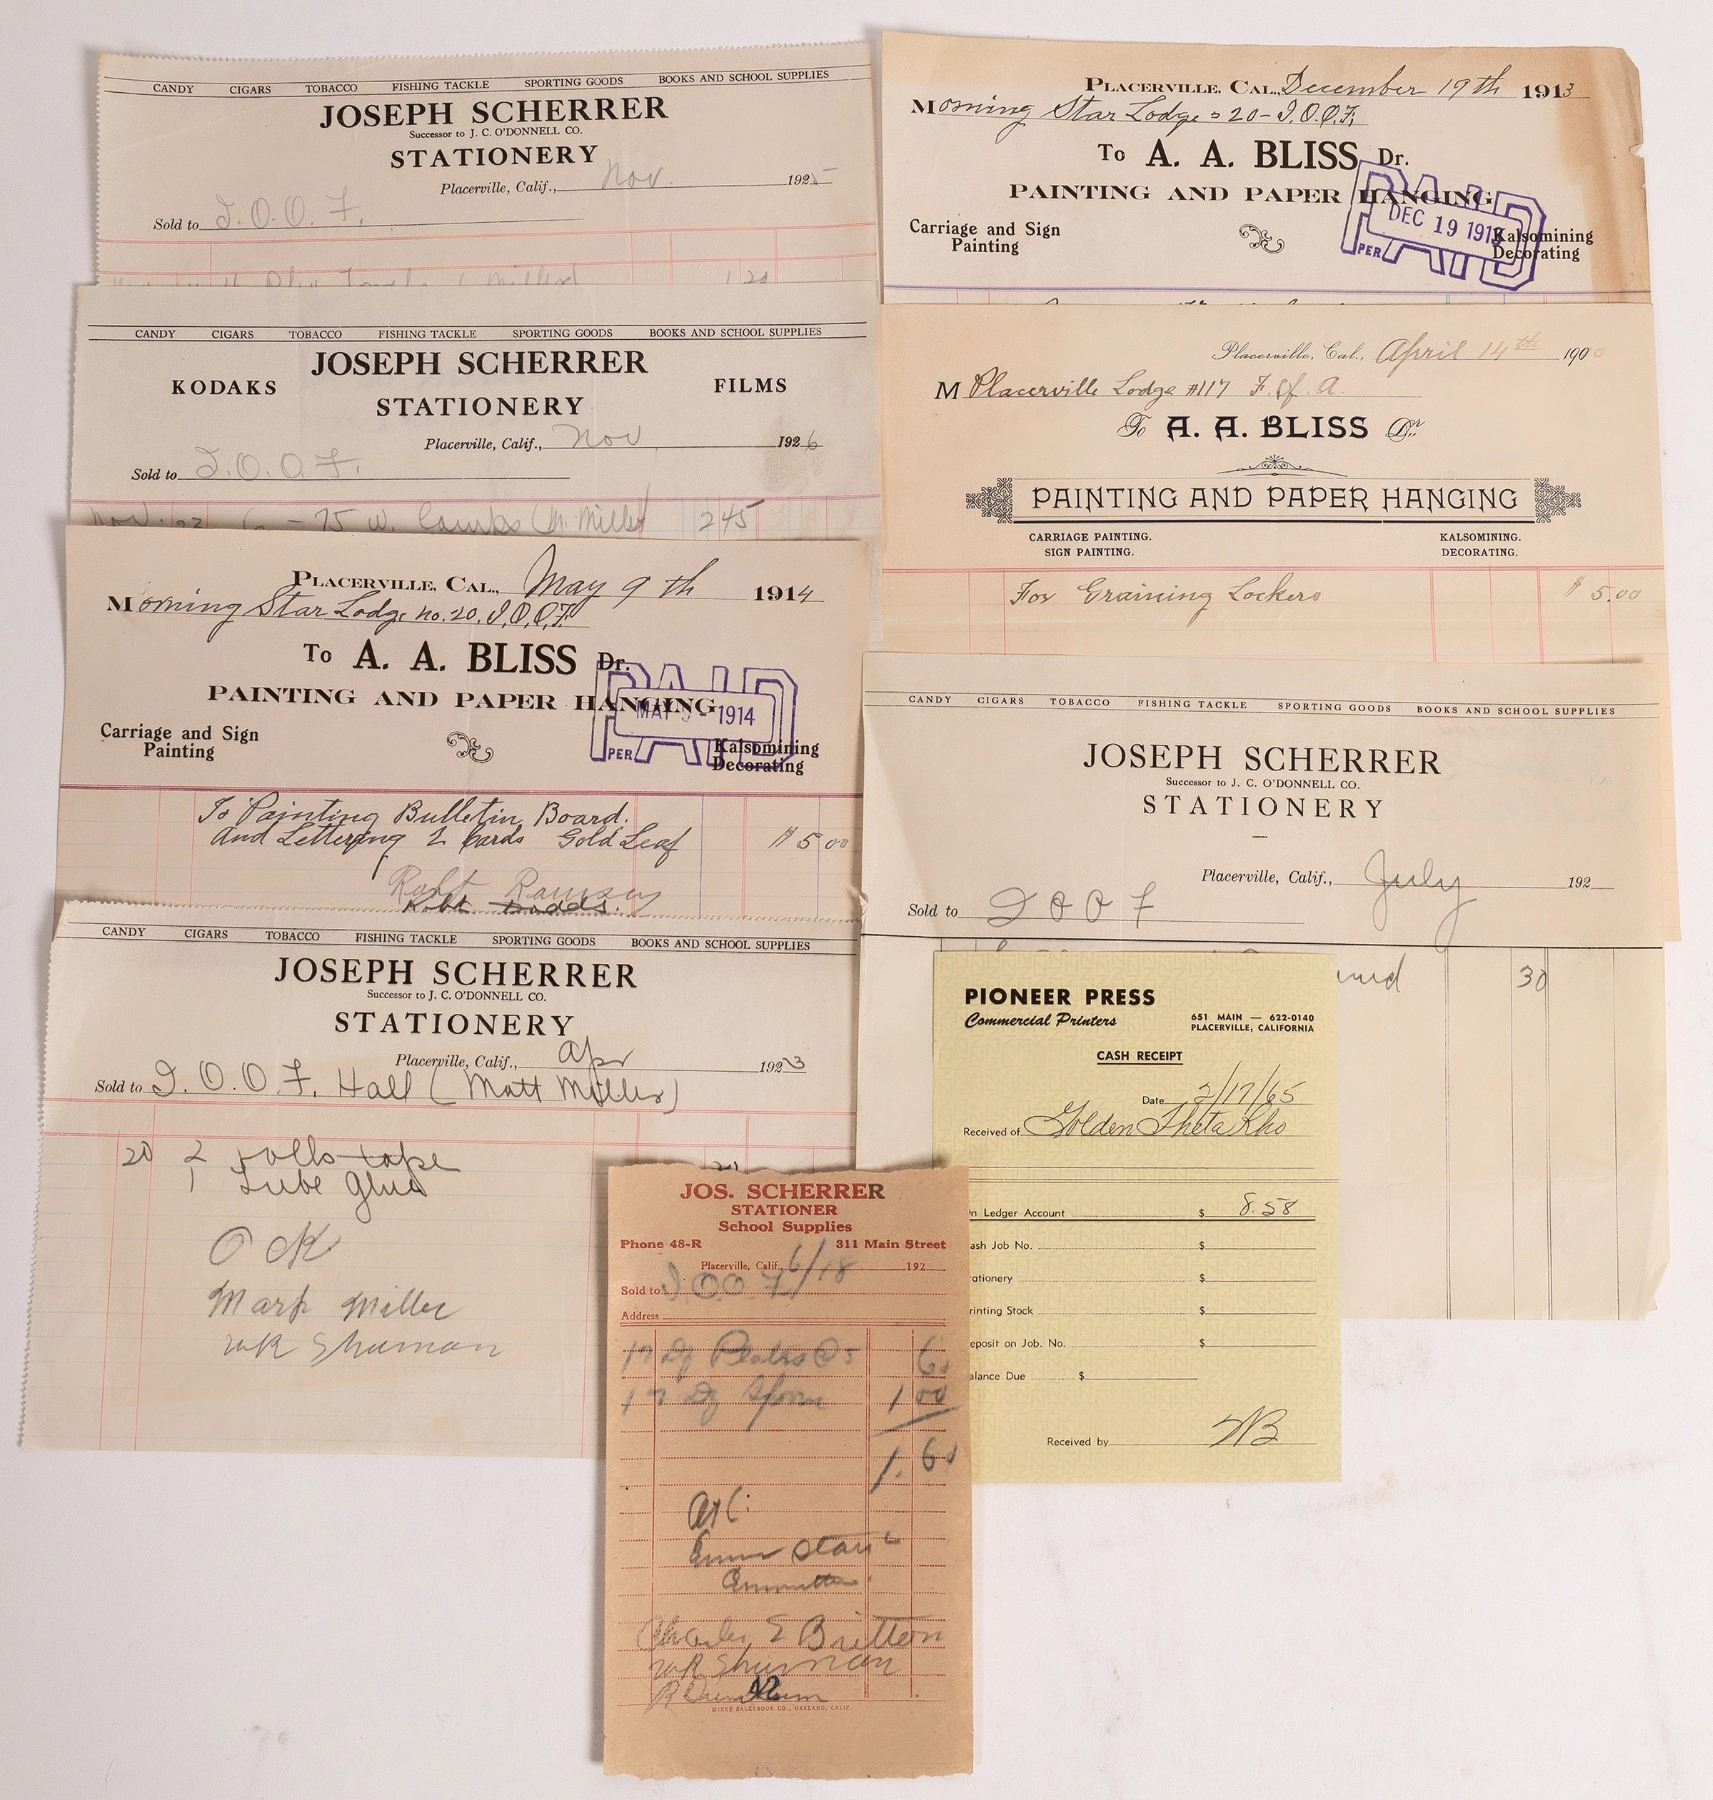 CANDY CIGARS TOBACCO FISHING TACKLE SPORTING GOODS BOOKS AND SCHOOL SUPPLIES
JOSEPH SCHERRER
Successor to J. C. O'DONNELL CO.
STATIONERY
Placerville, Calif., Nov. 1925
Sold to I.O.O.F.
1 20
CANDY CIGARS TOBACCO FISHING TACKLE SPORTING GOODS BOOKS AND SCHOOL SUPPLIES
JOSEPH SCHERRER
KODAKS FILMS
STATIONERY
Placerville, Calif., Nov 1926
Sold to I.O.O.F.
Nov. 23 6 - 75 w. Lamps (M. Miller) 2 45
PLACERVILLE, CAL., May 9th 1914
Morning Star Lodge no. 20. I.O.O.F.
To A. A. BLISS Dr.
PAINTING AND PAPER HANGING
PAID
MAY 9 - 1914
PER
Carriage and Sign Painting
Kalsomining Decorating
To Painting Bulletin Board.
And Lettering 2 Cards Gold Leaf $ 5 00
Robt Ramsey
CANDY CIGARS TOBACCO FISHING TACKLE SPORTING GOODS BOOKS AND SCHOOL SUPPLIES
JOSEPH SCHERRER
Successor to J. C. O'DONNELL CO.
STATIONERY
Placerville, Calif., Apr 1923
Sold to I.O.O.F. Hall (Matt Miller)
20 2 rolls tape
1 Tube Glue
OK
Mark Miller
WR Shuman
PLACERVILLE, CAL., December 19th 1913
Morning Star Lodge 20 - I.O.O.F.
To A. A. BLISS Dr.
PAINTING AND PAPER HANGING
PAID
DEC 19 1913
PER
Carriage and Sign Painting
Kalsomining Decorating
Placerville, Cal., April 14th 1900
M Placerville Lodge #117 F. of A.
To A. A. BLISS Dr.
PAINTING AND PAPER HANGING
CARRIAGE PAINTING. KALSOMINING.
SIGN PAINTING. DECORATING.
For Graining Lockers $ 5.00
CANDY CIGARS TOBACCO FISHING TACKLE SPORTING GOODS BOOKS AND SCHOOL SUPPLIES
JOSEPH SCHERRER
Successor to J. C. O'DONNELL CO.
STATIONERY
Placerville, Calif., July 192
Sold to IOOF
30
PIONEER PRESS
Commercial Printers
651 MAIN — 622-0140
PLACERVILLE, CALIFORNIA
CASH RECEIPT
Date 2/17/65
Received of Golden Theta Rho
n Ledger Account $ 8.58
ash Job No. $
ationery $
rinting Stock $
eposit on Job. No. $
alance Due $
Received by
JOS. SCHERRER
STATIONER
School Supplies
Phone 48-R 311 Main Street
Placerville, Calif. 6/18 192
Sold to I O O F
Address
60
1 00
1.60
Charles E Britton
WR Shuman
42
McKEE SALESBOOK CO., OAKLAND, CALIF.